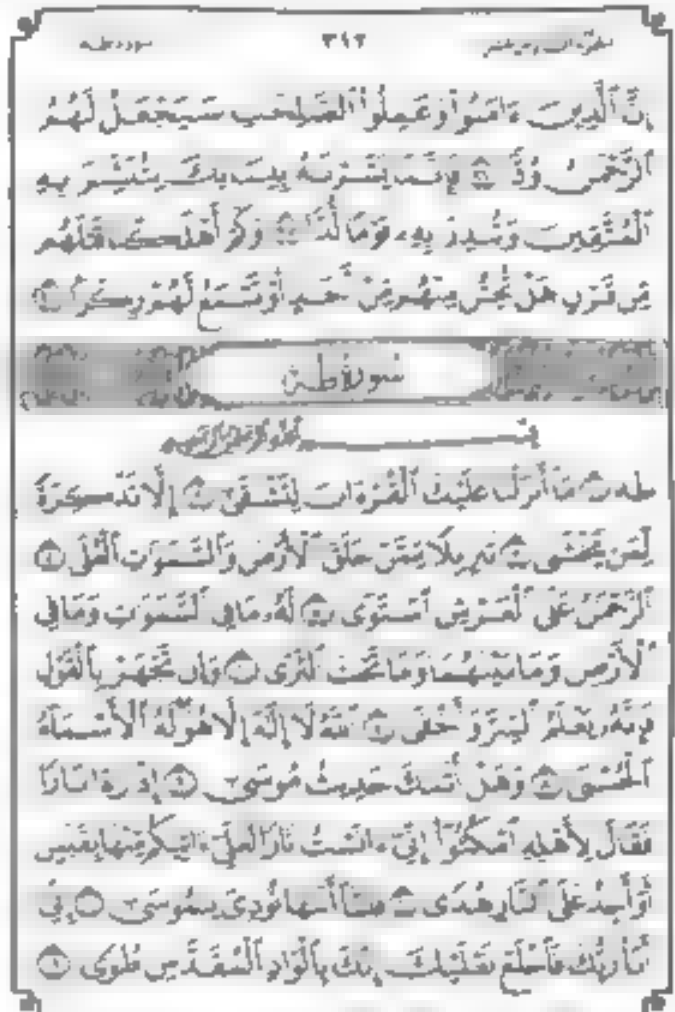 الجزء السادس عشر ٣١٢ سورة طه
إِنَّ ٱلَّذِينَ ءَامَنُوا۟ وَعَمِلُوا۟ ٱلصَّٰلِحَٰتِ سَيَجْعَلُ لَهُمُ
ٱلرَّحْمَٰنُ وُدًّا ۝٩٦ فَإِنَّمَا يَسَّرْنَٰهُ بِلِسَانِكَ لِتُبَشِّرَ بِهِ
ٱلْمُتَّقِينَ وَتُنذِرَ بِهِۦ قَوْمًا لُّدًّا ۝٩٧ وَكَمْ أَهْلَكْنَا قَبْلَهُم
مِّن قَرْنٍ هَلْ تُحِسُّ مِنْهُم مِّنْ أَحَدٍ أَوْ تَسْمَعُ لَهُمْ رِكْزًۢا ۝٩٨
سُورَةُ طه
بِسْمِ ٱللَّهِ ٱلرَّحْمَٰنِ ٱلرَّحِيمِ
طه ۝١ مَآ أَنزَلْنَا عَلَيْكَ ٱلْقُرْءَانَ لِتَشْقَىٰٓ ۝٢ إِلَّا تَذْكِرَةً
لِّمَن يَخْشَىٰ ۝٣ تَنزِيلًا مِّمَّنْ خَلَقَ ٱلْأَرْضَ وَٱلسَّمَٰوَٰتِ ٱلْعُلَى ۝٤
ٱلرَّحْمَٰنُ عَلَى ٱلْعَرْشِ ٱسْتَوَىٰ ۝٥ لَهُۥ مَا فِى ٱلسَّمَٰوَٰتِ وَمَا فِى
ٱلْأَرْضِ وَمَا بَيْنَهُمَا وَمَا تَحْتَ ٱلثَّرَىٰ ۝٦ وَإِن تَجْهَرْ بِٱلْقَوْلِ
فَإِنَّهُۥ يَعْلَمُ ٱلسِّرَّ وَأَخْفَى ۝٧ ٱللَّهُ لَآ إِلَٰهَ إِلَّا هُوَ لَهُ ٱلْأَسْمَآءُ
ٱلْحُسْنَىٰ ۝٨ وَهَلْ أَتَىٰكَ حَدِيثُ مُوسَىٰٓ ۝٩ إِذْ رَءَا نَارًا
فَقَالَ لِأَهْلِهِ ٱمْكُثُوٓا۟ إِنِّىٓ ءَانَسْتُ نَارًا لَّعَلِّىٓ ءَاتِيكُم مِّنْهَا بِقَبَسٍ
أَوْ أَجِدُ عَلَى ٱلنَّارِ هُدًى ۝١٠ فَلَمَّآ أَتَىٰهَا نُودِىَ يَٰمُوسَىٰٓ ۝١١ إِنِّىٓ
أَنَا۠ رَبُّكَ فَٱخْلَعْ نَعْلَيْكَ إِنَّكَ بِٱلْوَادِ ٱلْمُقَدَّسِ طُوًى ۝١٢